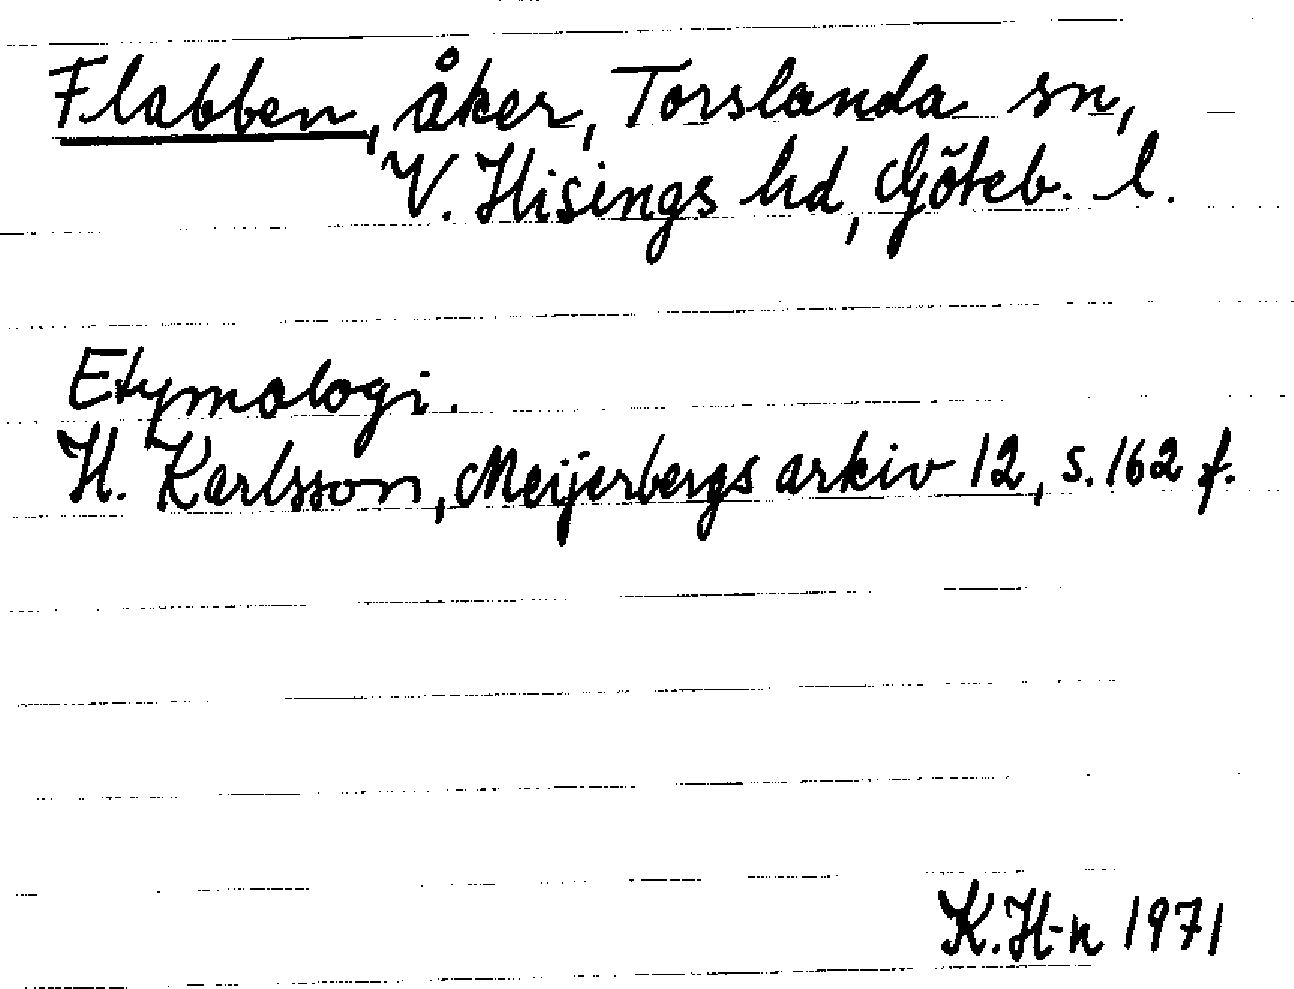 Flabben, åker, Torslanda sn,
V. Hisings hd, Göteb. l.
Etymologi.
H. Karlsson, Meijerbergs arkiv 12, s. 162 f.
K.H-n 1971